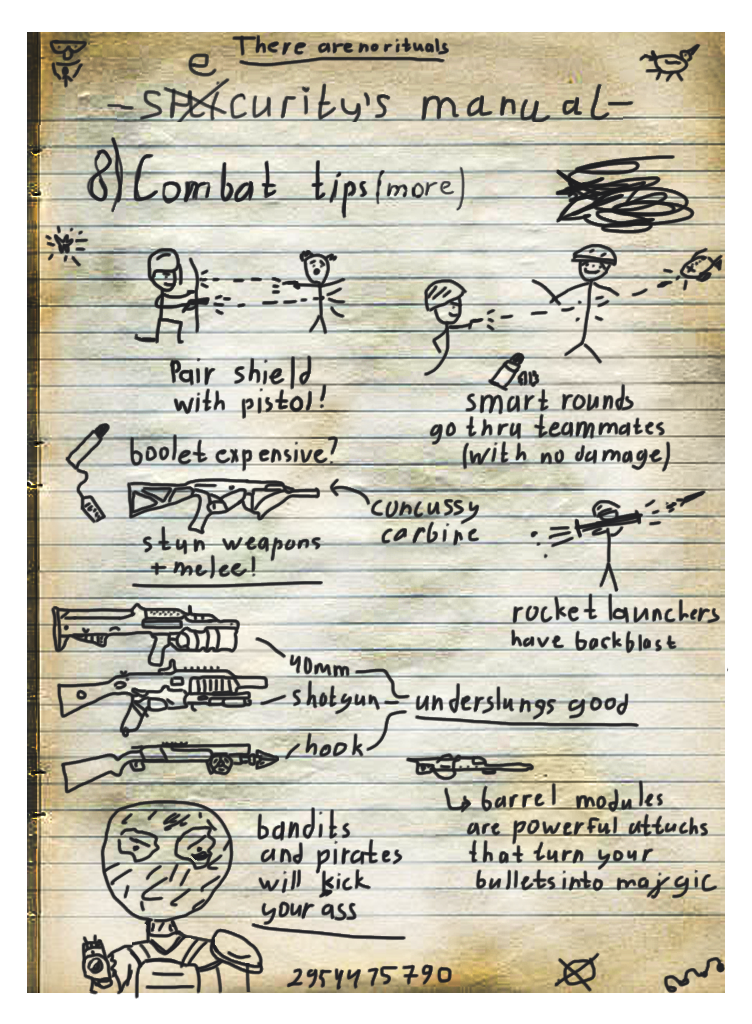 There are no rituals
e
-security's manual-
8) Combat tips (more)
Pair shield
with pistol!
smart rounds
go thru teammates
(with no damage)
boolet expensive?
concussy
carbine
stun weapons
+ melee!
rocket launchers
have backblast
40mm
shotgun
hook
underslungs good
barrel modules
are powerful attachs
that turn your
bullets into majgic
bandits
and pirates
will kick
your ass
2954475790